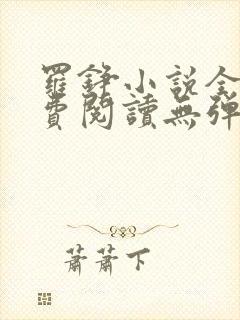 羅錚小説全
費閱讀無彈
蕭蕭下